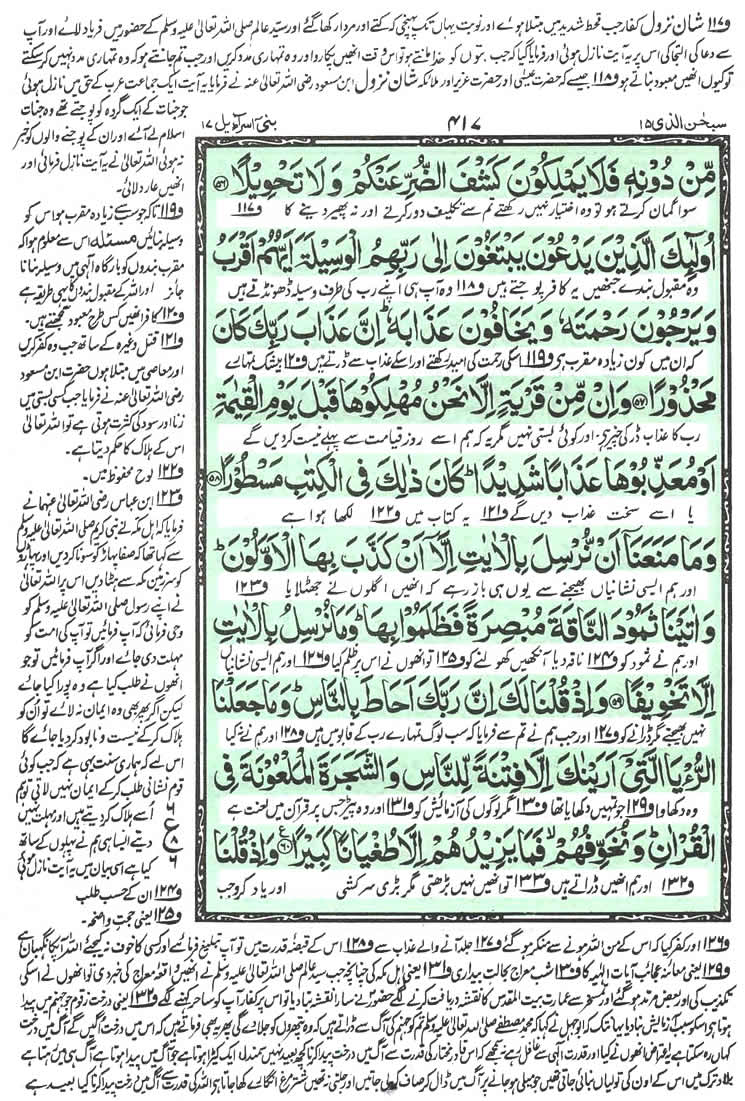 و۱۱۷ شان نزول کفار جب قحط شدید میں مبتلا ہوئے اور نوبت یہاں تک پہنچی کہ کتے اور مردار کھا گئے اور سید عالم صلی اللہ تعالیٰ علیہ وسلم کے حضور میں فریاد لائے اور آپ
سے دعا کی التجا کی اس پر یہ آیت نازل ہوئی اور فرمایا گیا کہ جب بتوں کو خدا مانتے ہو تو اس وقت انھیں پکارو اور وہ تمہاری مدد کریں اور جب تم جانتے ہو کہ وہ تمہاری مدد نہیں کر سکتے
تو کیوں انھیں معبود بناتے ہو و۱۱۸ جیسے کہ حضرت عیسیٰ اور حضرت عزیر اور ملائکہ شان نزول ابن مسعود رضی اللہ تعالیٰ عنہ نے فرمایا یہ آیت ایک جماعت عرب کے حق میں نازل ہوئی
سبحٰن الذی ۱۵
۴۱۷
بنی اسراءیل ۱۷
مِّنْ دُوْنِهٖ فَلَا يَمْلِكُوْنَ كَشْفَ الضُّرِّ عَنْكُمْ وَ لَا تَحْوِيْلًا ﴿۵۶﴾
سوا گمان کرتے ہو تو وہ اختیار نہیں رکھتے تم سے تکلیف دور کرنے اور نہ پھیر دینے کا و۱۱۷
اُولٰٓئِكَ الَّذِيْنَ يَدْعُوْنَ يَبْتَغُوْنَ اِلٰى رَبِّهِمُ الْوَسِيْلَةَ اَيُّهُمْ اَقْرَبُ
وہ مقبول بندے جنھیں یہ کافر پوجتے ہیں و۱۱۸ وہ آپ ہی اپنے رب کی طرف وسیلہ ڈھونڈتے ہیں
وَ يَرْجُوْنَ رَحْمَتَهٗ وَ يَخَافُوْنَ عَذَابَهٗ ؕ اِنَّ عَذَابَ رَبِّكَ كَانَ
کہ ان میں کون زیادہ مقرب ہے و۱۱۹ اسکی رحمت کی امید رکھتے اور اسکے عذاب سے ڈرتے ہیں و۱۲۰ بیشک تمہارے
مَحْذُوْرًا ﴿۵۷﴾ وَ اِنْ مِّنْ قَرْيَةٍ اِلَّا نَحْنُ مُهْلِكُوْهَا قَبْلَ يَوْمِ الْقِيٰمَةِ
رب کا عذاب ڈر کی چیز ہے، اور کوئی بستی نہیں مگر یہ کہ ہم اسے روز قیامت سے پہلے نیست کردیں گے
اَوْ مُعَذِّبُوْهَا عَذَابًا شَدِيْدًا ؕ كَانَ ذٰلِكَ فِی الْكِتٰبِ مَسْطُوْرًا ﴿۵۸﴾
یا اسے سخت عذاب دیں گے و۱۲۱ یہ کتاب میں و۱۲۲ لکھا ہوا ہے
وَ مَا مَنَعَنَاۤ اَنْ نُّرْسِلَ بِالْاٰيٰتِ اِلَّاۤ اَنْ كَذَّبَ بِهَا الْاَوَّلُوْنَ ؕ
اور ہم ایسی نشانیاں بھیجنے سے یوں ہی باز رہے کہ انھیں اگلوں نے جھٹلایا و۱۲۳
وَ اٰتَيْنَا ثَمُوْدَ النَّاقَةَ مُبْصِرَةً فَظَلَمُوْا بِهَا ؕ وَ مَا نُرْسِلُ بِالْاٰيٰتِ
اور ہم نے ثمود کو و۱۲۴ ناقہ دیا آنکھیں کھولنے کو و۱۲۵ تو انھوں نے اس پر ظلم کیا و۱۲۶ اور ہم ایسی نشانیاں
اِلَّا تَخْوِيْفًا ﴿۵۹﴾ وَ اِذْ قُلْنَا لَكَ اِنَّ رَبَّكَ اَحَاطَ بِالنَّاسِ ؕ وَ مَا جَعَلْنَا
نہیں بھیجتے مگر ڈرانے کو و۱۲۷ اور جب ہم نے تم سے فرمایا کہ سب لوگ تمہارے رب کے قابو میں ہیں و۱۲۸ اور ہم نے نہ کیا
الرُّءْيَا الَّتِیْۤ اَرَيْنٰكَ اِلَّا فِتْنَةً لِّلنَّاسِ وَ الشَّجَرَةَ الْمَلْعُوْنَةَ فِی
وہ دکھاوا و۱۲۹ جو تمہیں دکھایا تھا و۱۳۰ مگر لوگوں کی آزمائش کو و۱۳۱ اور وہ پیڑ جس پر قرآن میں لعنت ہے
الْقُرْاٰنِ ؕ وَ نُخَوِّفُهُمْ ۙ فَمَا يَزِيْدُهُمْ اِلَّا طُغْيَانًا كَبِيْرًا ﴿۶۰﴾ وَ اِذْ قُلْنَا
و۱۳۲ اور ہم انھیں ڈراتے ہیں و۱۳۳ تو انھیں نہیں بڑھتی مگر بڑی سرکشی اور یاد کرو جب
جو جنات کے ایک گروہ کو پوجتے تھے وہ جنات
اسلام لے آئے اور ان کے پوجنے والوں کو خبر
نہ ہوئی اللہ تعالیٰ نے یہ آیت نازل فرمائی اور
انھیں عار دلائی۔
و۱۱۹ تاکہ جو سب سے زیادہ مقرب ہو اس کو
وسیلہ بنائیں مسئلہ اس سے معلوم ہوا کہ
مقرب بندوں کو بارگاہ الٰہی میں وسیلہ بنانا
جائز اور اللہ کے مقبول بندوں کا یہی طریقہ ہے
و۱۲۰ کافر انھیں کس طرح معبود سمجھتے ہیں۔
و۱۲۱ قتل وغیرہ کے ساتھ جب وہ کفر کریں
اور معاصی میں مبتلا ہوں حضرت ابن مسعود
رضی اللہ تعالیٰ عنہ نے فرمایا جب کسی بستی میں
زنا اور سود کی کثرت ہوتی ہے تو اللہ تعالیٰ
اس کے ہلاک کا حکم دیتا ہے۔
و۱۲۲ لوح محفوظ میں۔
و۱۲۳ ابن عباس رضی اللہ تعالیٰ عنہما نے
فرمایا کہ اہل مکہ نے نبی کریم صلی اللہ تعالیٰ علیہ وسلم
سے کہا تھا کہ صفا پہاڑ کو سونا کردیں اور پہاڑوں
کو سرزمین مکہ سے ہٹا دیں اس پر اللہ تعالیٰ
نے اپنے رسول صلی اللہ تعالیٰ علیہ وسلم کو
وحی فرمائی کہ آپ فرمائیں تو آپ کی امت کو
مہلت دی جائے اور اگر آپ فرمائیں تو جو
انھوں نے طلب کیا ہے وہ پورا کیا جائے
لیکن اگر پھر بھی وہ ایمان نہ لائے تو اُن کو
ہلاک کرکے نیست و نابود کردیا جائے گا
اس لیے کہ ہماری سنت یہی ہے کہ جب کوئی
قوم نشانی طلب کر کے ایمان نہیں لاتی تو ہم
اُسے ہلاک کردیتے ہیں اور مہلت نہیں
دیتے ایسا ہی ہم نے پہلوں کے ساتھ
کیا ہے اسی بیان میں یہ آیت نازل ہوئی
و۱۲۴ ان کے حسب طلب
و۱۲۵ یعنی حجت واضحہ۔
۶
ع
۸
۶
و۱۲۶ اور کفر کیا کہ اس کے من اللہ ہونے سے منکر ہو گئے و۱۲۷ جلد آنے والے عذاب سے و۱۲۸ اس کے قبضۂ قدرت میں تو آپ تبلیغ فرمائیے اور کسی کا خوف نہ کیجئے اللہ آپکا نگہبان ہے
و۱۲۹ یعنی معائنہ عجائب آیات الٰہیہ کا و۱۳۰ شب معراج بحالت بیداری و۱۳۱ یعنی اہل مکہ کی چنانچہ جب سید عالم صلی اللہ تعالیٰ علیہ وسلم نے انھیں واقعۂ معراج کی خبر دی تو انھوں نے اسکی
تکذیب کی اور بعض مرتد ہو گئے اور تمسخر سے عمارت بیت المقدس کا نقشہ دریافت کرنے لگے حضور نے سارا نقشہ بتا دیا تو اس پر کفار آپ کو ساحر کہنے لگے و۱۳۲ یعنی درخت زقوم جو جہنم میں پیدا
ہوتا ہے اسکو سبب آزمائش بنا دیا یہاں تک کہ ابوجہل نے کہا کہ محمد مصطفےٰ صلی اللہ تعالیٰ علیہ وسلم تم کو جہنم کی آگ سے ڈراتے ہیں کہ وہ پتھروں کو جلا دے گی پھر یہ بھی فرماتے ہیں کہ اس میں درخت اُگیں گے آگ میں درخت
کہاں رہ سکتا ہے یہ اعتراض انھوں نے کیا اور قدرت الٰہی سے غافل رہے نہ سمجھے کہ اس قادر مختار کی قدرت سے آگ میں درخت پیدا کرنا کچھ بعید نہیں سمندل ایک کیڑا ہوتا ہے جو آگ میں پیدا ہوتا ہے آگ ہی میں رہتا ہے
بلاد ترک میں اس کے اون کی تولیاں بنائی جاتی تھیں جو میلی ہو جانے پر آگ میں ڈال کر صاف کر لی جاتیں اور جلتی نہ تھیں شتر مرغ انگارے کھا جاتا ہے اللہ کی قدرت سے آگ میں درخت پیدا کرنا کیا بعید ہے